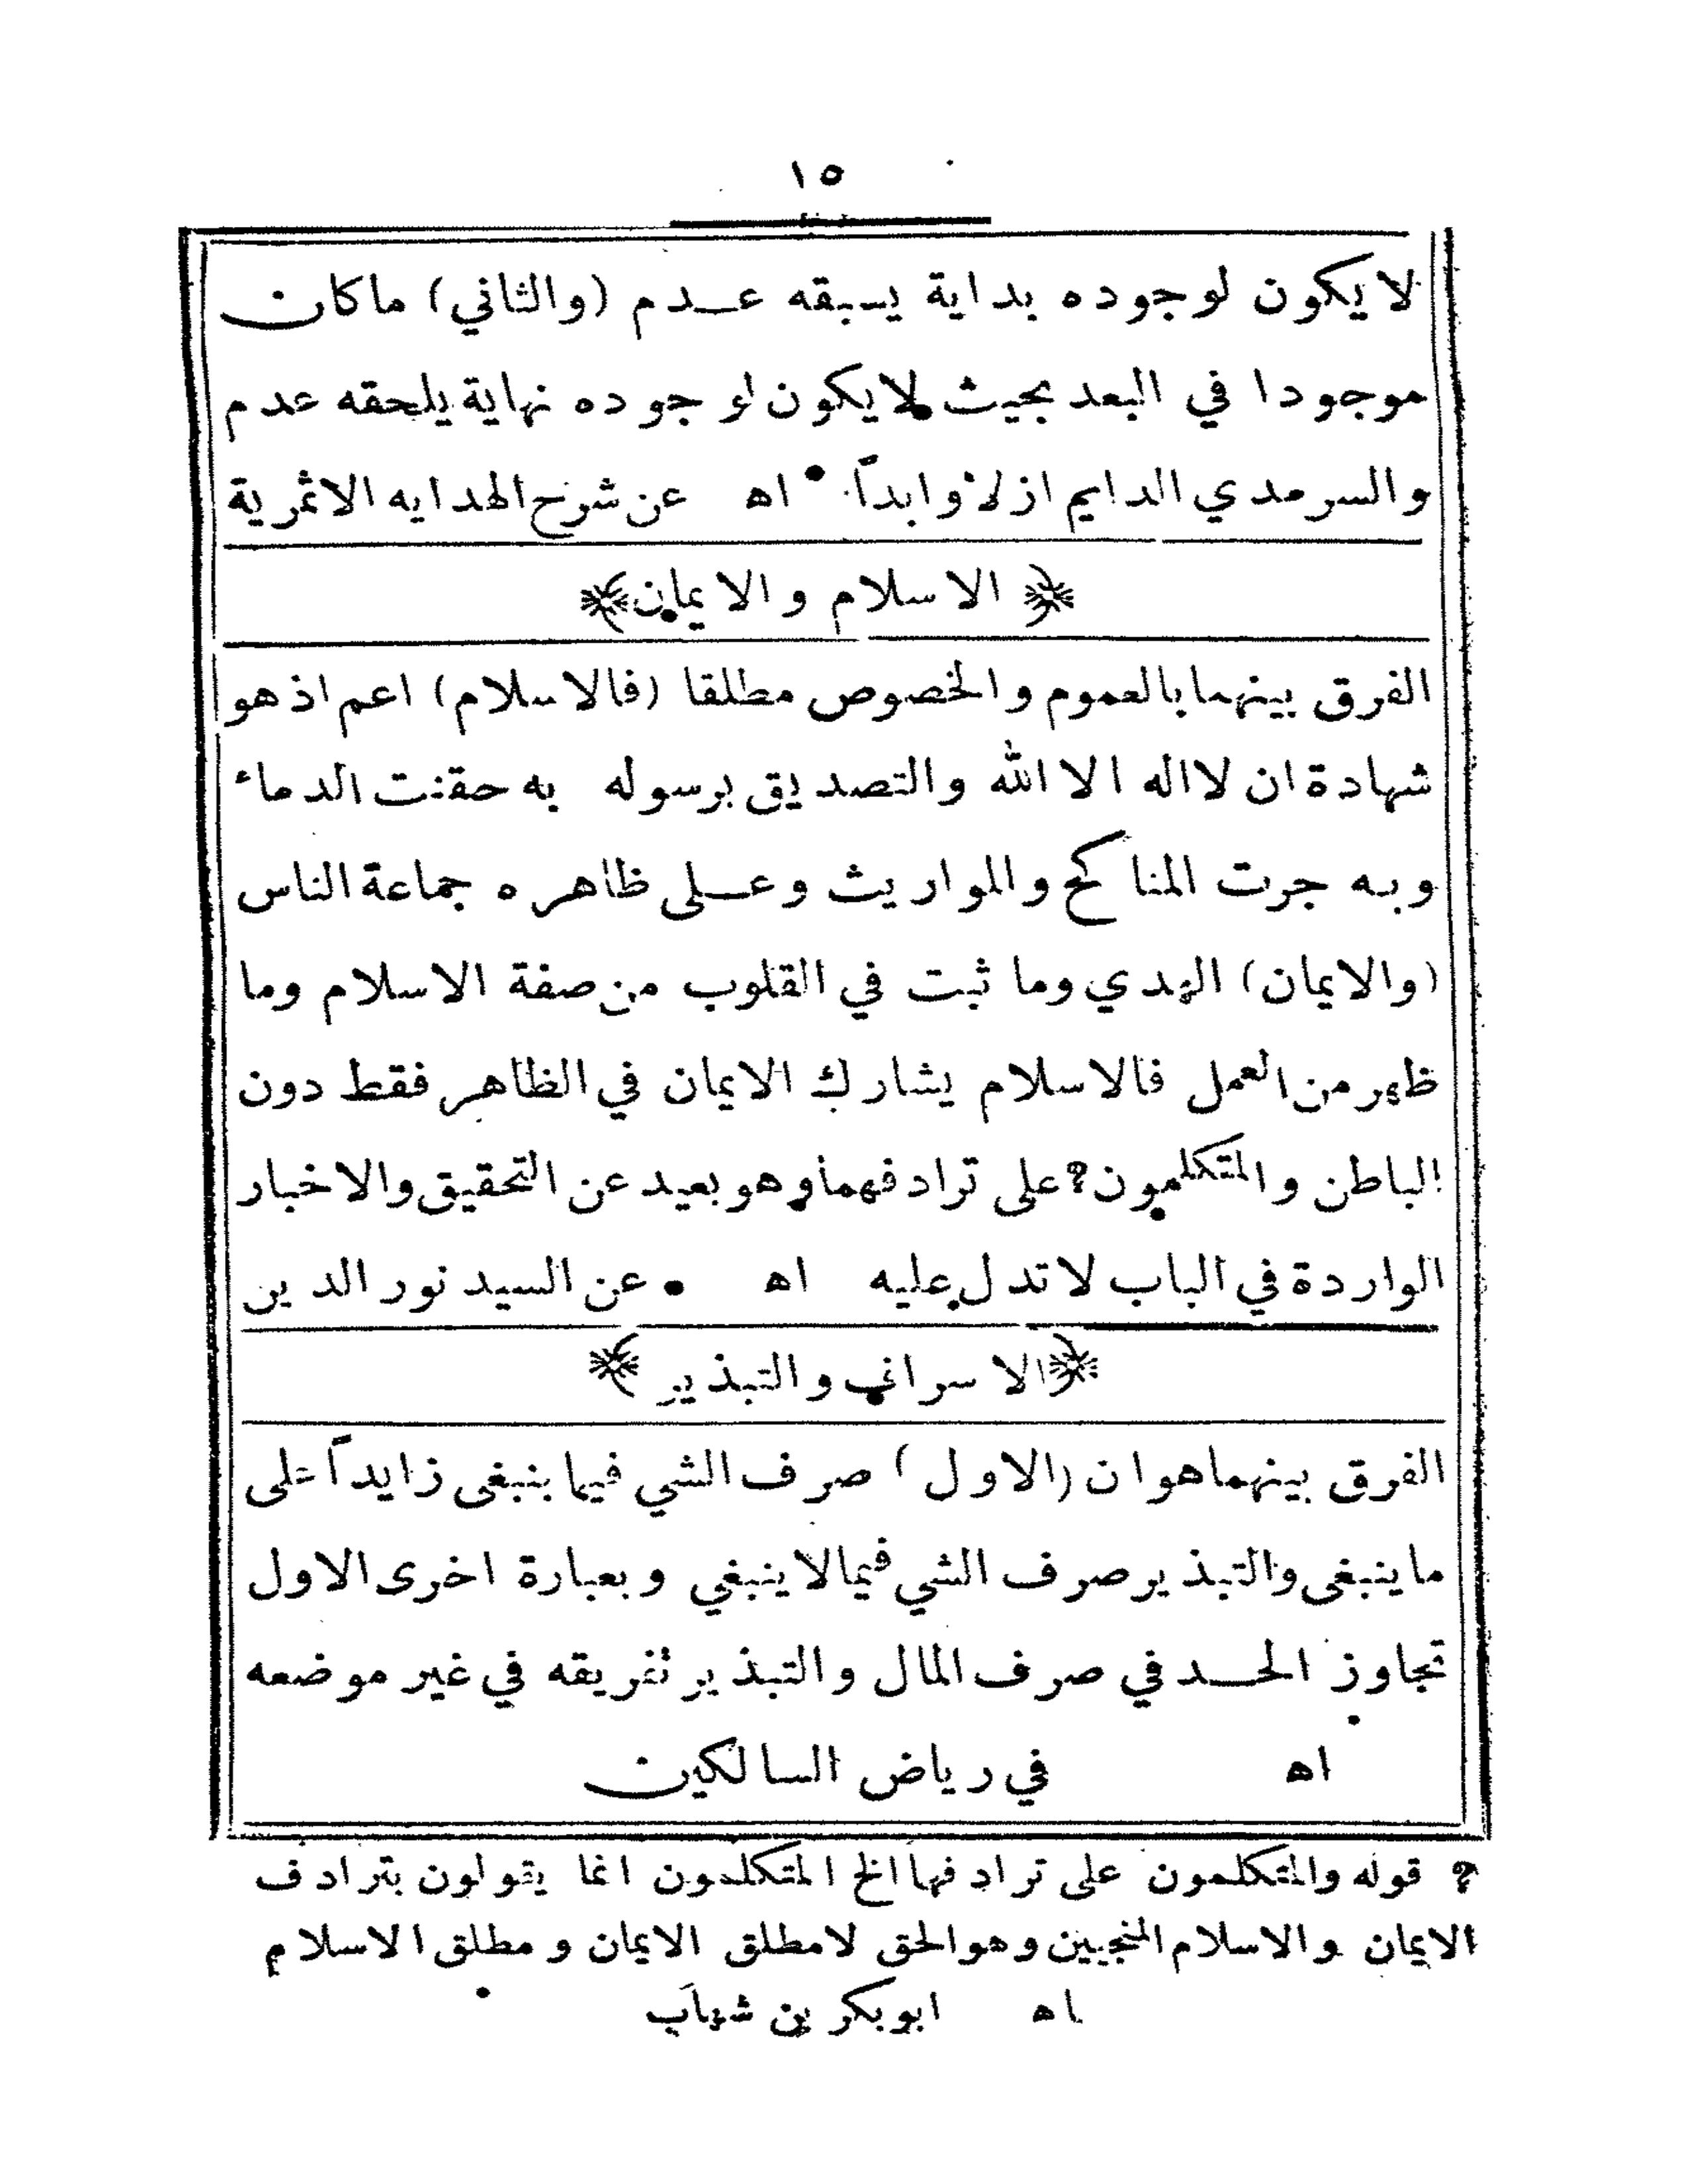 ١٥
لا يكون لوجوده بداية يسبقه عدم (والثاني) ماكان
موجودا في البعد بحيث لايكون لوجوده نهاية يلحقه عدم
والسرمدي الدايم ازلا وابداً. اه عن شرح الهدايه الاثمرية
﴿ الاسلام والايمان ﴾
الفرق بينهما بالعموم والخصوص مطلقا (فالاسلام) اعم اذ هو
شهادة ان لااله الا الله والتصديق برسوله به حقنت الدماء
وبه جرت المناكح والمواريث وعلى ظاهره جماعة الناس
(والايمان) الهدي وما ثبت في القلوب من صفة الاسلام وما
ظهر من العمل فالاسلام يشارك الايمان في الظاهر فقط دون
الباطن والمتكلمون؟ على ترادفهما وهو بعيد عن التحقيق والاخبار
الواردة في الباب لا تدل عليه اه • عن السيد نور الدين
﴿ الاسراف والتبذير ﴾
الفرق بينهما هو ان (الاول) صرف الشي فيما ينبغى زايداً على
ما ينبغى والتبذير صرف الشي فيما لا ينبغي وبعبارة اخرى الاول
تجاوز الحد في صرف المال والتبذير تفريقه في غير موضعه
اه في رياض السالكين
؟ قوله والمتكلمون على ترادفها الخ المتكلمون انما يقولون بترادف
الايمان والاسلام المنجيين وهو الحق لا مطلق الايمان ومطلق الاسلام
اه ابوبكر بن شهاب